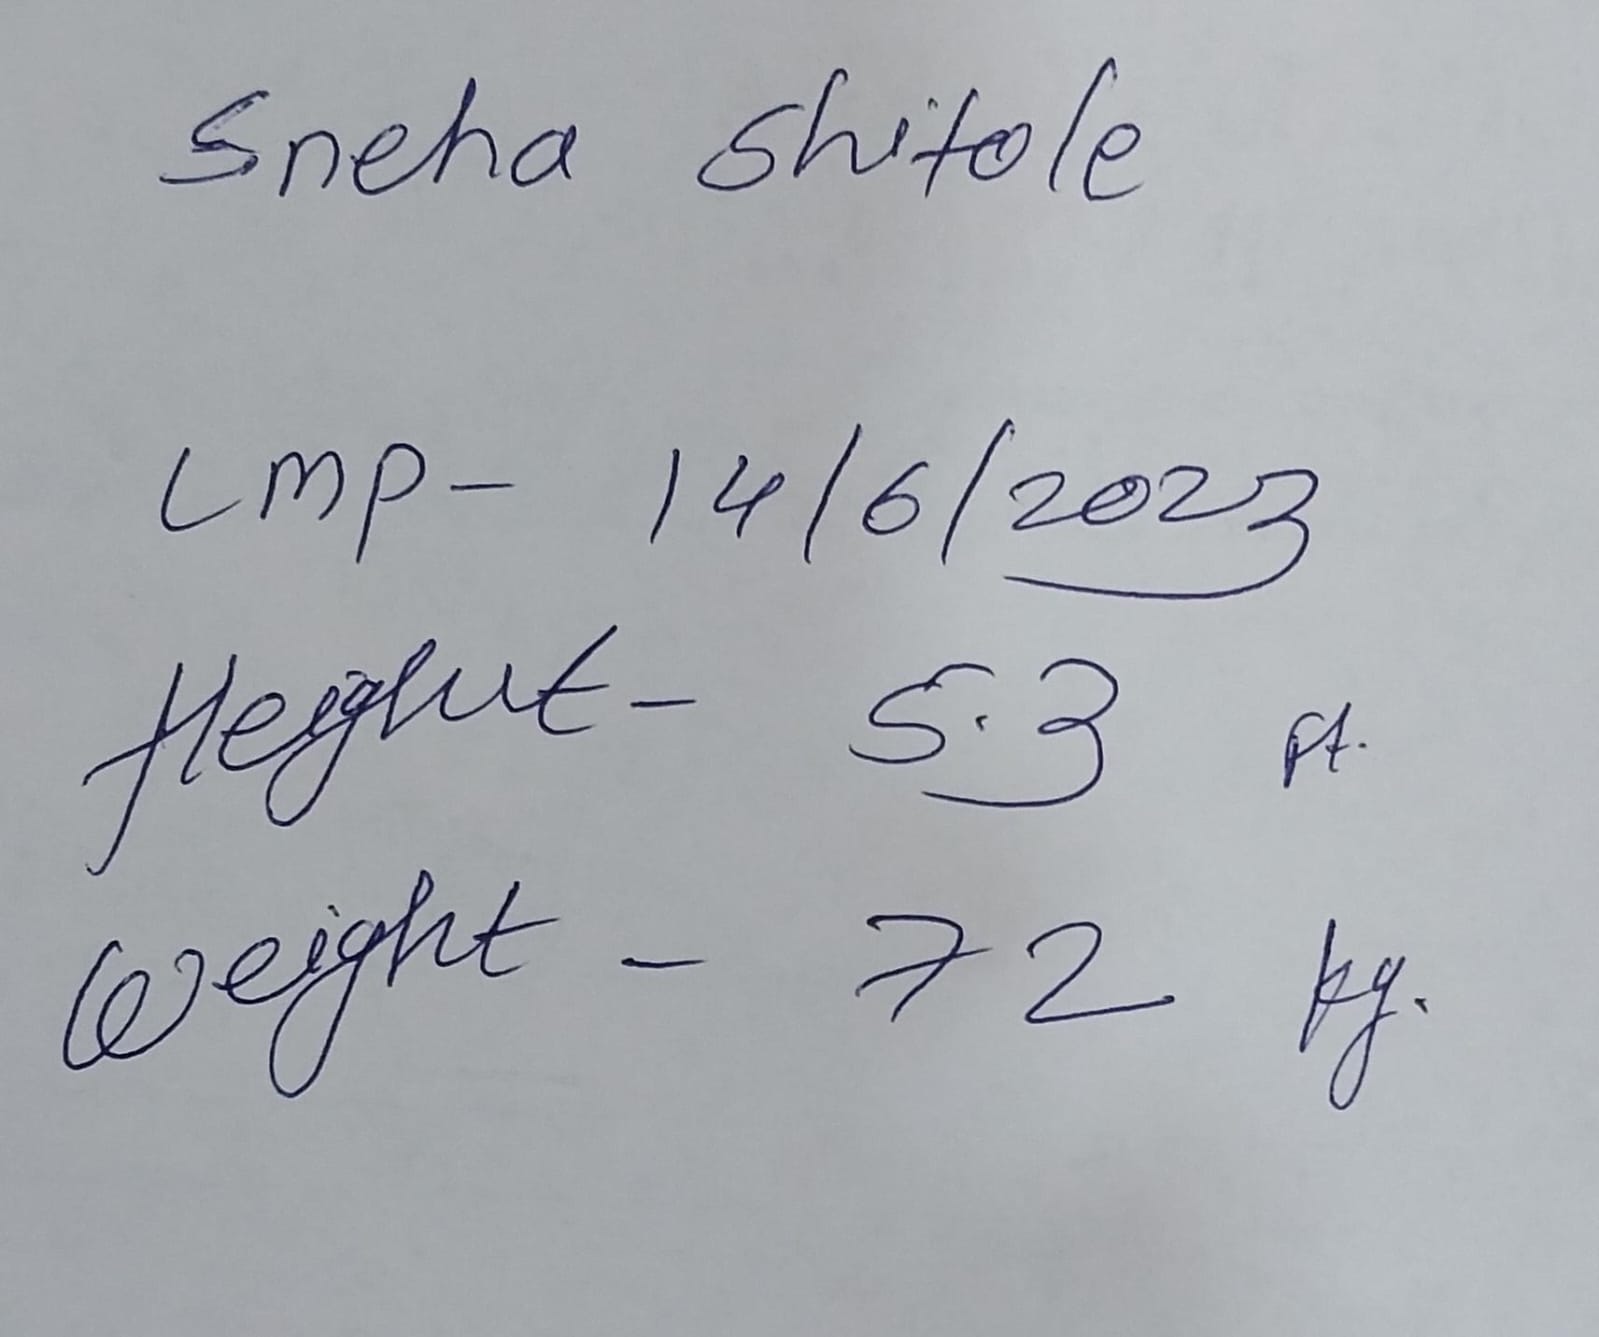 Sneha Shitole
LMP- 14/6/2023
Height- 5.3 ft.
Weight - 72 kg.